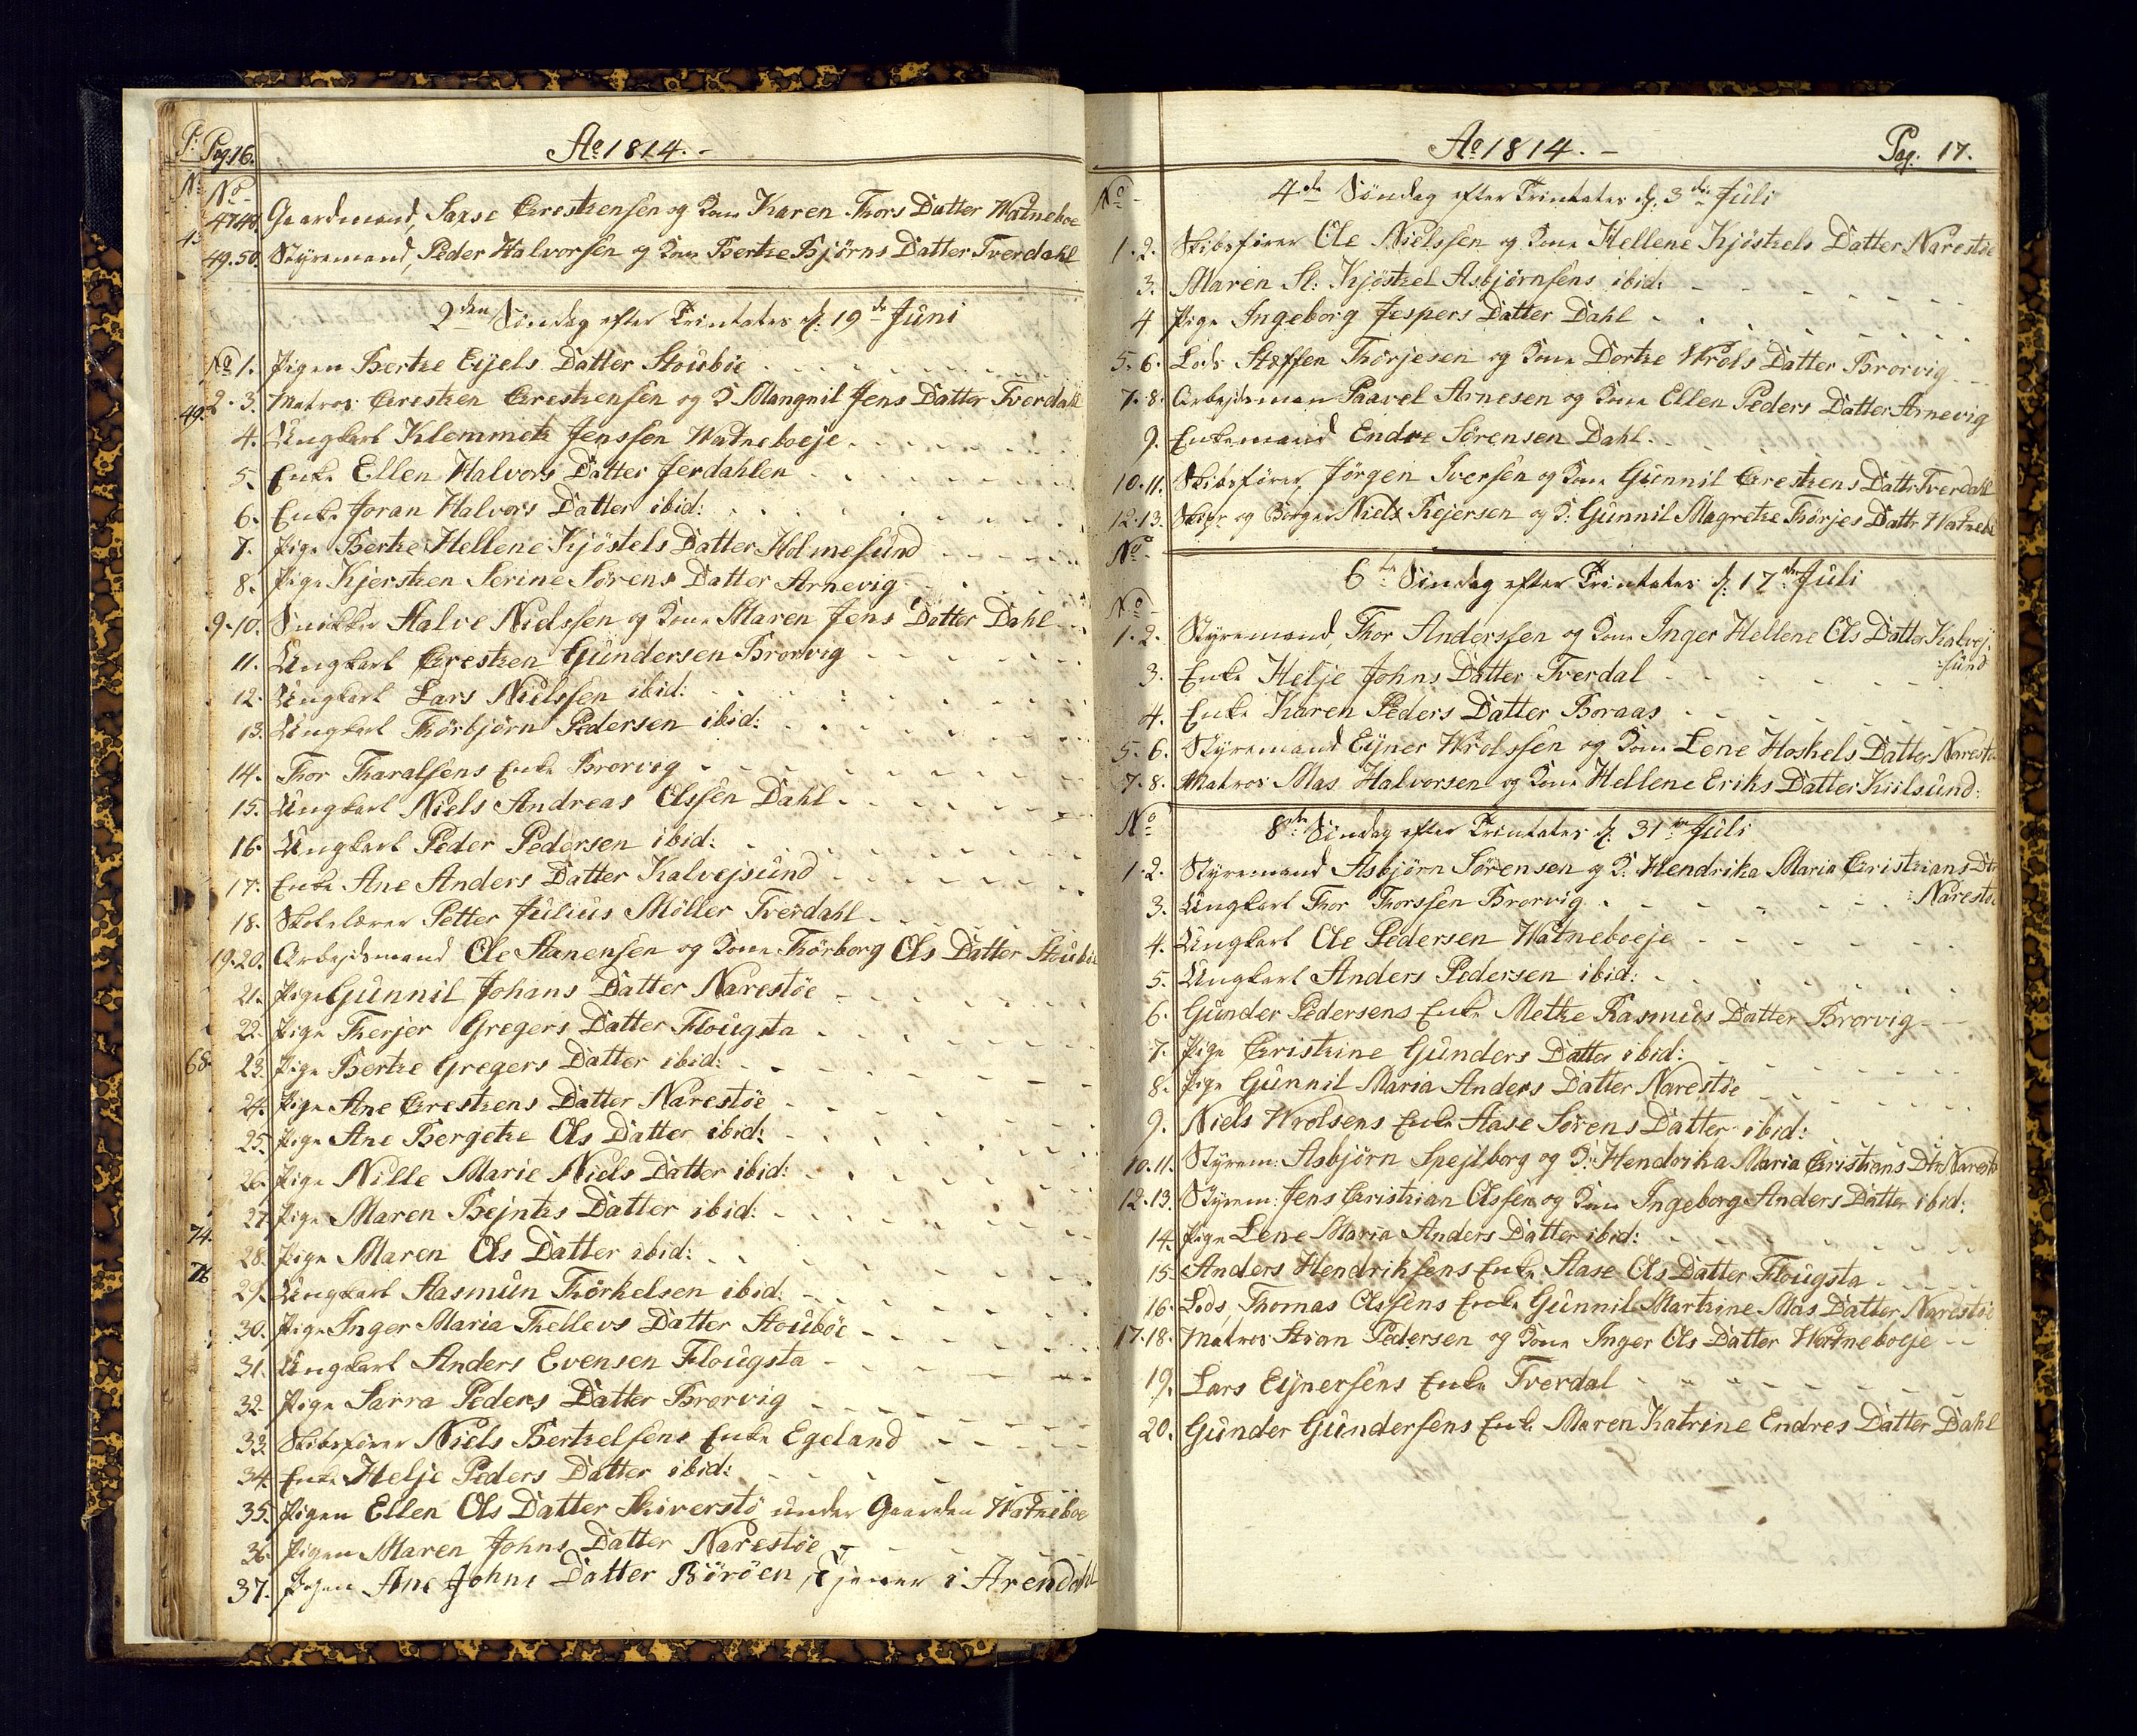 P: Pag: 16.
Ao 1814. -
No No -
47.48. Gaardmand, Saxse Chrestensen og Kone Karen Thors Datter Watneboe
49.50. Styremand, Peder Halvorsen og Kone Berthe Bjørns Datter Tverdahl
2den Søndag efter Trinitates d: 19de Juni
No 1. Pigen Berthe Eijels Datter Stoubøe
49. 2.3. Matros Chresten Chrestensen og K. Mangnil Jens Datter Tverdahl
4. Ungkarl Klemmet Jenssen Watneboeje
5. Enke Ellen Halvors Datter Jerdahlen
6. Enke Joran Halvors Datter ibid:
7. Pige Berthe Hellene Kjöstels Datter Holmesund
8. Pige Kjersten Serine Sørens Datter Arnevig
9.10. Snikker Halve Nielssen og Kone Maren Jens Datter Dahl
11. Ungkarl Chresten Gundersen Brorvig
12. Ungkarl Lars Nielssen ibid:
13. Ungkarl Thörbjörn Pedersen ibid:
14. Thor Tharalsens Enke Brorvig
15. Ungkarl Niels Andreas Olssen Dahl
16. Ungkarl Peder Pedersen ibid:
17. Enke Ane Anders Datter Kalvejsund
18. Skolelærer Petter Julius Möller Tverdahl
19.20. Arbejdsmand Ole Aanensen og Kone Thörborg Ols Datter Stoubøe
21. Pige Gunnil Johans Datter Narestöe
22. Pige Therjer Gregers Datter Flougsta
68. 23. Pige Berthe Gregers Datter ibid:
24. Pige Ane Chrestens Datter Narestöe
25. Pige Ane Bergethe Ols Datter ibid:
26. Pige Nille Marie Niels Datter ibid:
27. Pige Maren Bejnths Datter ibid:
74. 28. Pige Maren Ols Datter ibid:
76 29. Ungkarl Aasmun Thörkelsen ibid:
30. Pige Inger Maria Thellevs Datter Stouböe
31. Ungkarl Anders Evensen Flougsta
32. Pige Sarra Peders Datter Brorvig
33. Skibsfører Niels Berthelsens Enke Egeland
34. Enke Helje Peders Datter ibid:
35. Pigen Ellen Ols Datter Skiverstö under Gaarden Watneboe
36. Pigen Maren Johns Datter Narestöe
37. Pigen Ane Johns Datter Böröen, Tjener i Arendahl
Ao 1814. - Pag: 17.
No - 4de Söndag efter Trinitates d: 3die Juli
1.2. Skibsfører Ole Nielssen og Kone Hellene Kjöstels Datter Narestöe
3. Maren Sl: Kjöstel Asbjörnsens ibid:
4 Pige Ingeborg Jespers Datter Dahl
5.6. Lods Steffen Thörjesen og Kone Dorthe Wrols Datter Brorvig
7.8. Arbejdsman Paavel Arnesen og Kone Ellen Peders Datter Arnevig
9. Enkemand Endre Sörensen Dahl
10.11. Skibsfører Jörgen Iversen og Kone Gunnil Chrestens Dattr Tverdahl
12.13. Skipr og Borger Niels Rejersen og K: Gunnil Magrethe Thörjes Dattr Watnebo
No -
6te Söndag efter Trinitates d: 17de Juli
No -
1.2. Styremand, Thor Anderssen og Kone Inger Hellene Ols Datter Kalvej:
:sund
3. Enke Helje Johns Datter Tverdal
4. Enke Karen Peders Datter Boraas
5.6. Styremand Eijner Wrolssen og Kone Lene Haskels Datter Narestöe
7.8. Matros Mas Halvorsen og Kone Hellene Eriks Datter Kiilsund:
No 8de Söndag efter Trinitates d: 31te Juli
1.2. Styremand Asbjörn Sörensen og K: Hendrika Maria Christians Dtr
:Narestöe
3. Ungkarl Thor Thorssen Brorvig
4. Ungkarl Ole Pedersen Watneboeje
5. Ungkarl Anders Pedersen ibid:
6. Gunder Pedersens Enke Methe Rasmus Datter Brorvig
7. Pige Christine Gunders Datter ibid:
8. Pige Gunnil Maria Anders Datter Narestöe
9. Niels Wrolsens Enke Aase Sörens Datter ibid:
10.11. Styrem: Asbjörn Spejlborg og K: Hendrika Maria Christians Dtr Narestö
12.13. Styrem: Jens Christian Olssen og Kone Ingeborg Anders Datter ibid:
14. Pige Lene Maria Anders Datter ibid:
15. Anders Hendriksens Enke Aase Ols Datter Flougsta
16. Lods, Thomas Olssens Enke Gunnil Marthine Mas Datter Narestöe
17.18. Matros Stian Pedersen og Kone Inger Ols Datter Watneboeje
19. Lars Eijnersens Enke Tverdal
20. Gunder Gundersens Enke Maren Katrine Endres Datter Dahl